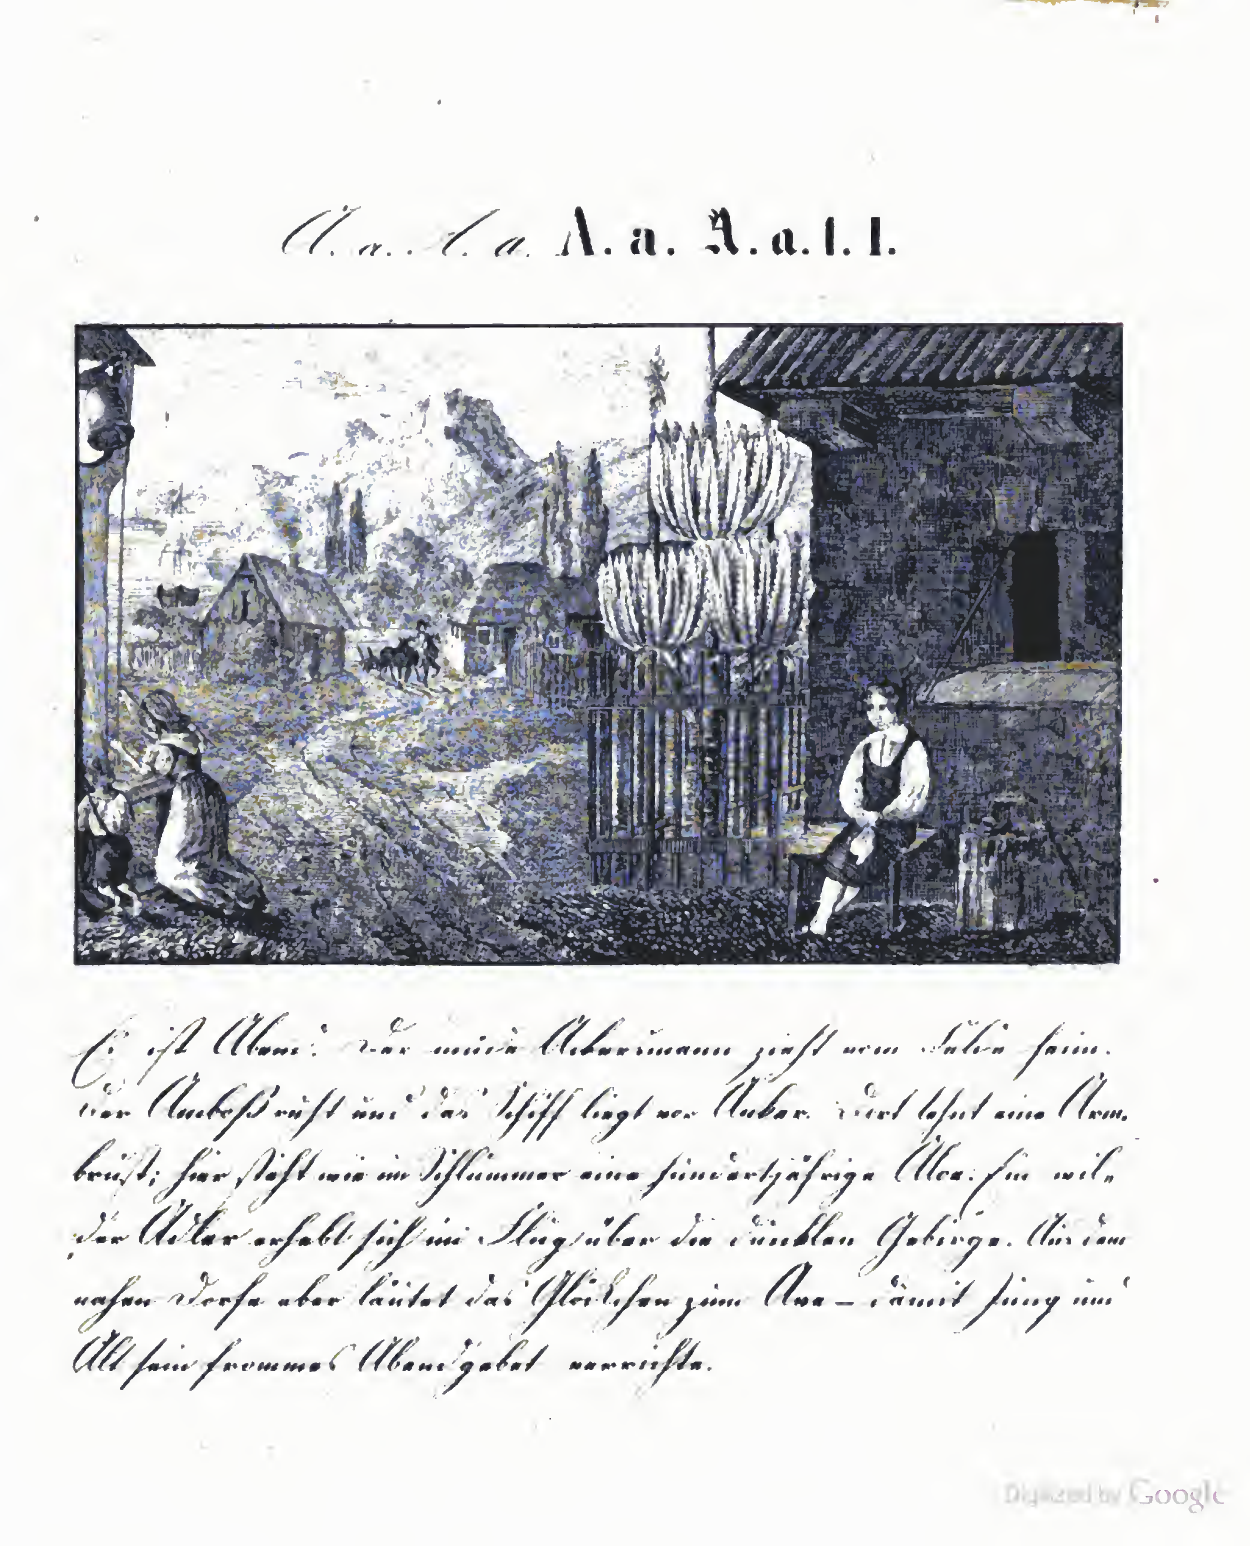 A. a. A. a. A. a. A. a. 1. I.
Es ist Abend. Der müde Ackersmann zieht vom Felde heim.
Der Amboß ruht und das Schiff liegt vor Anker. Dort lehnt eine Arm-
brust; hier steht wie im Schlummer eine hundertjährige Aloe. Ein wil-
der Adler erhebt sich im Flug über die dunklen Gebirge. Aus dem
nahen Dorfe aber läutet das Glöckchen zum Ave – damit Jung und
Alt sein frommes Abendgebet verrichte.
Digitized by Google